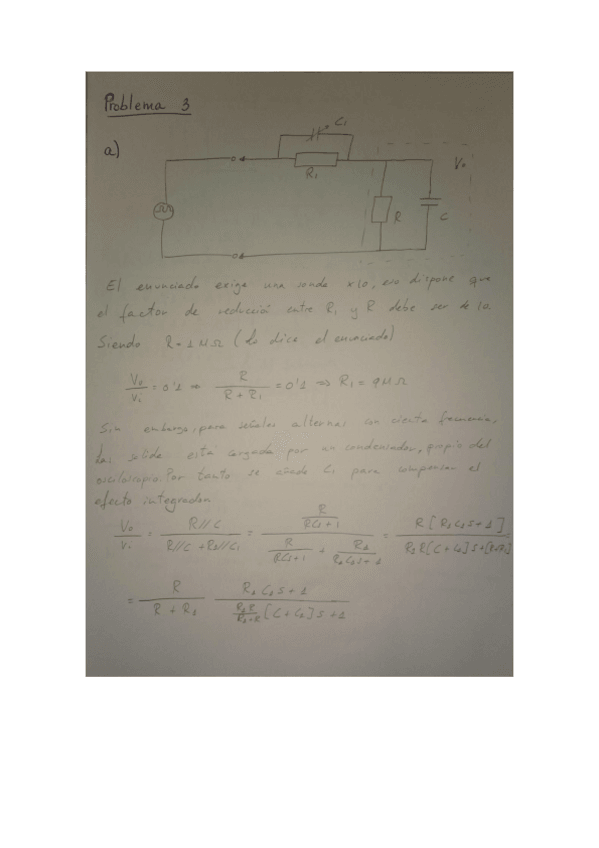 Problema 3
a)
C₁
R₁
V₀
R
C
El enunciado exige una sonda x10, eso dispone que
el factor de reducción entre R₁ y R debe ser de 10.
Siendo R = 1 MΩ (Lo dice el enunciado)
V₀/Vi = 0'1 ⇒ R/(R + R₁) = 0'1 ⇒ R₁ = 9MΩ
Sin embargo, para señales alternas con cierta frecuencia,
la salida esta cargada por un condensador, propio del
osciloscopio. Por tanto se añade C₁ para compensar el
efecto integrador.
V₀/Vi = R//C / (R//C + R₁//C₁) = (R/(RCs+1)) / (R/(RCs+1) + R₁/(R₁C₁s+1)) = R[R₁C₁s+1] / (R₁R[C+C₁]s+[R+R₁]) =
= R/(R + R₁) (R₁C₁s+1) / ((R₁R/(R₁+R))[C+C₁]s+1)